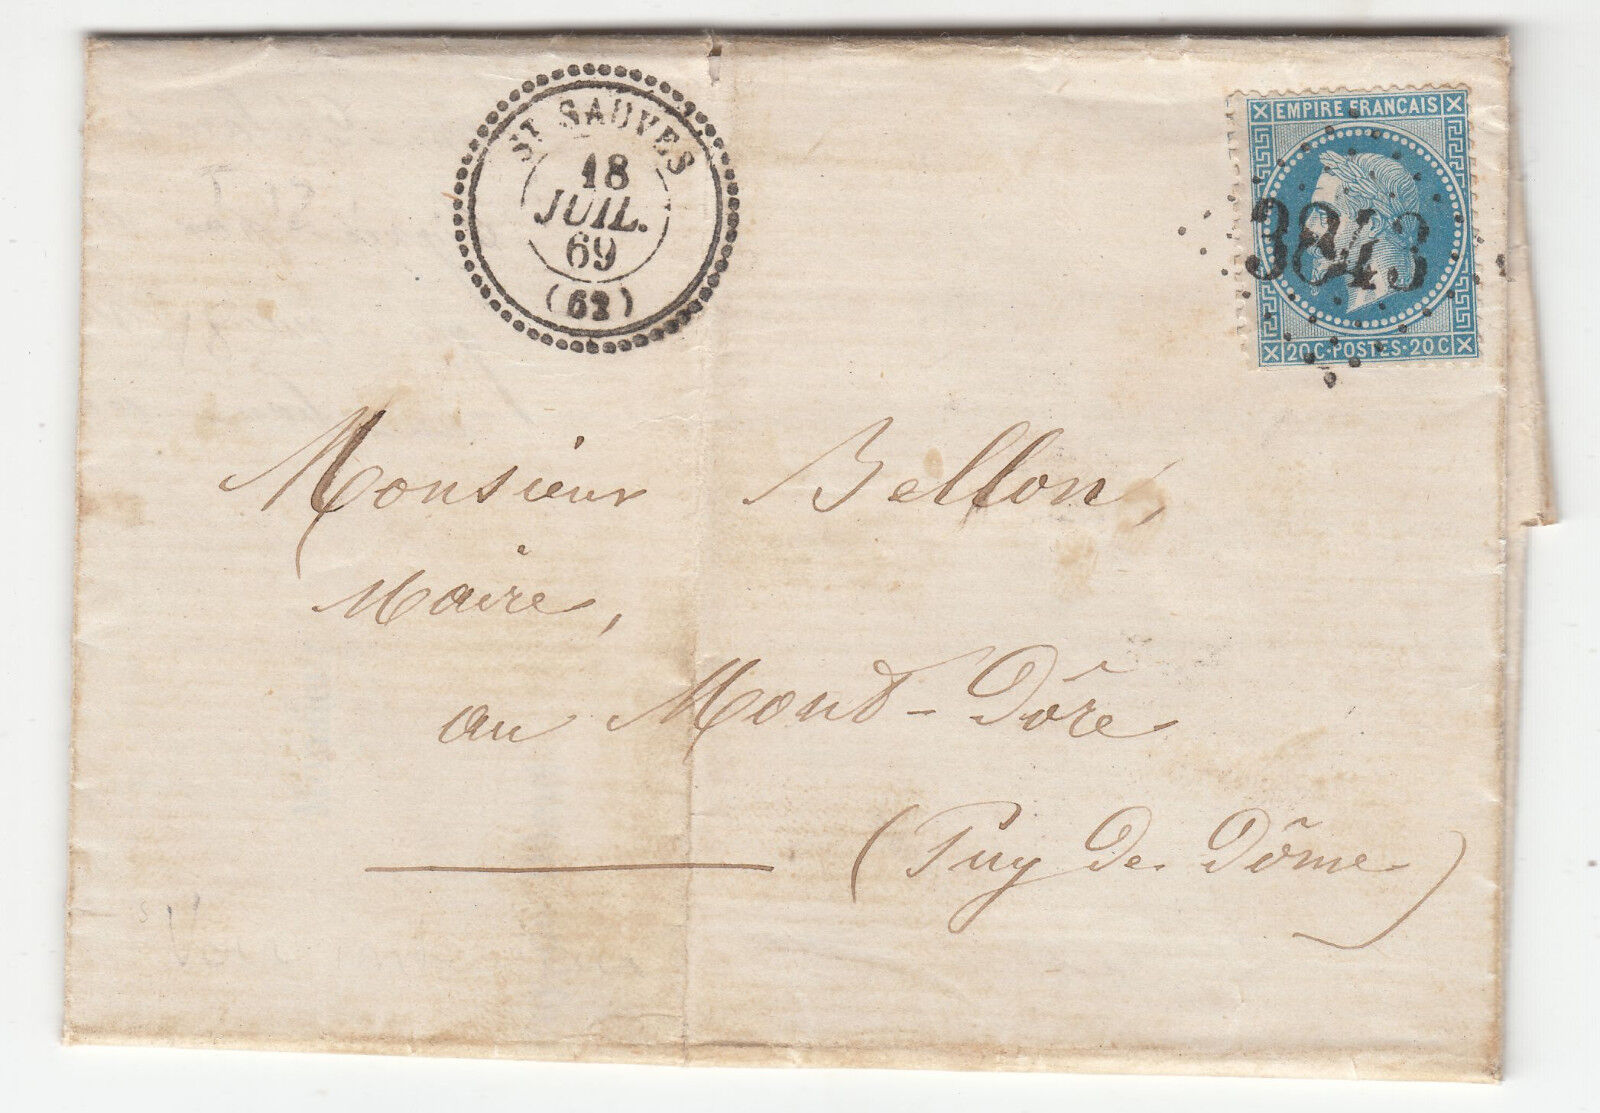 ST SAUVES
18
JUIL.
69
(62)
EMPIRE FRANCAIS
3843
20 C · POSTES · 20 C
Monsieur Bellon,
Maire,
au Mont-Dôre
(Puy de Dôme)